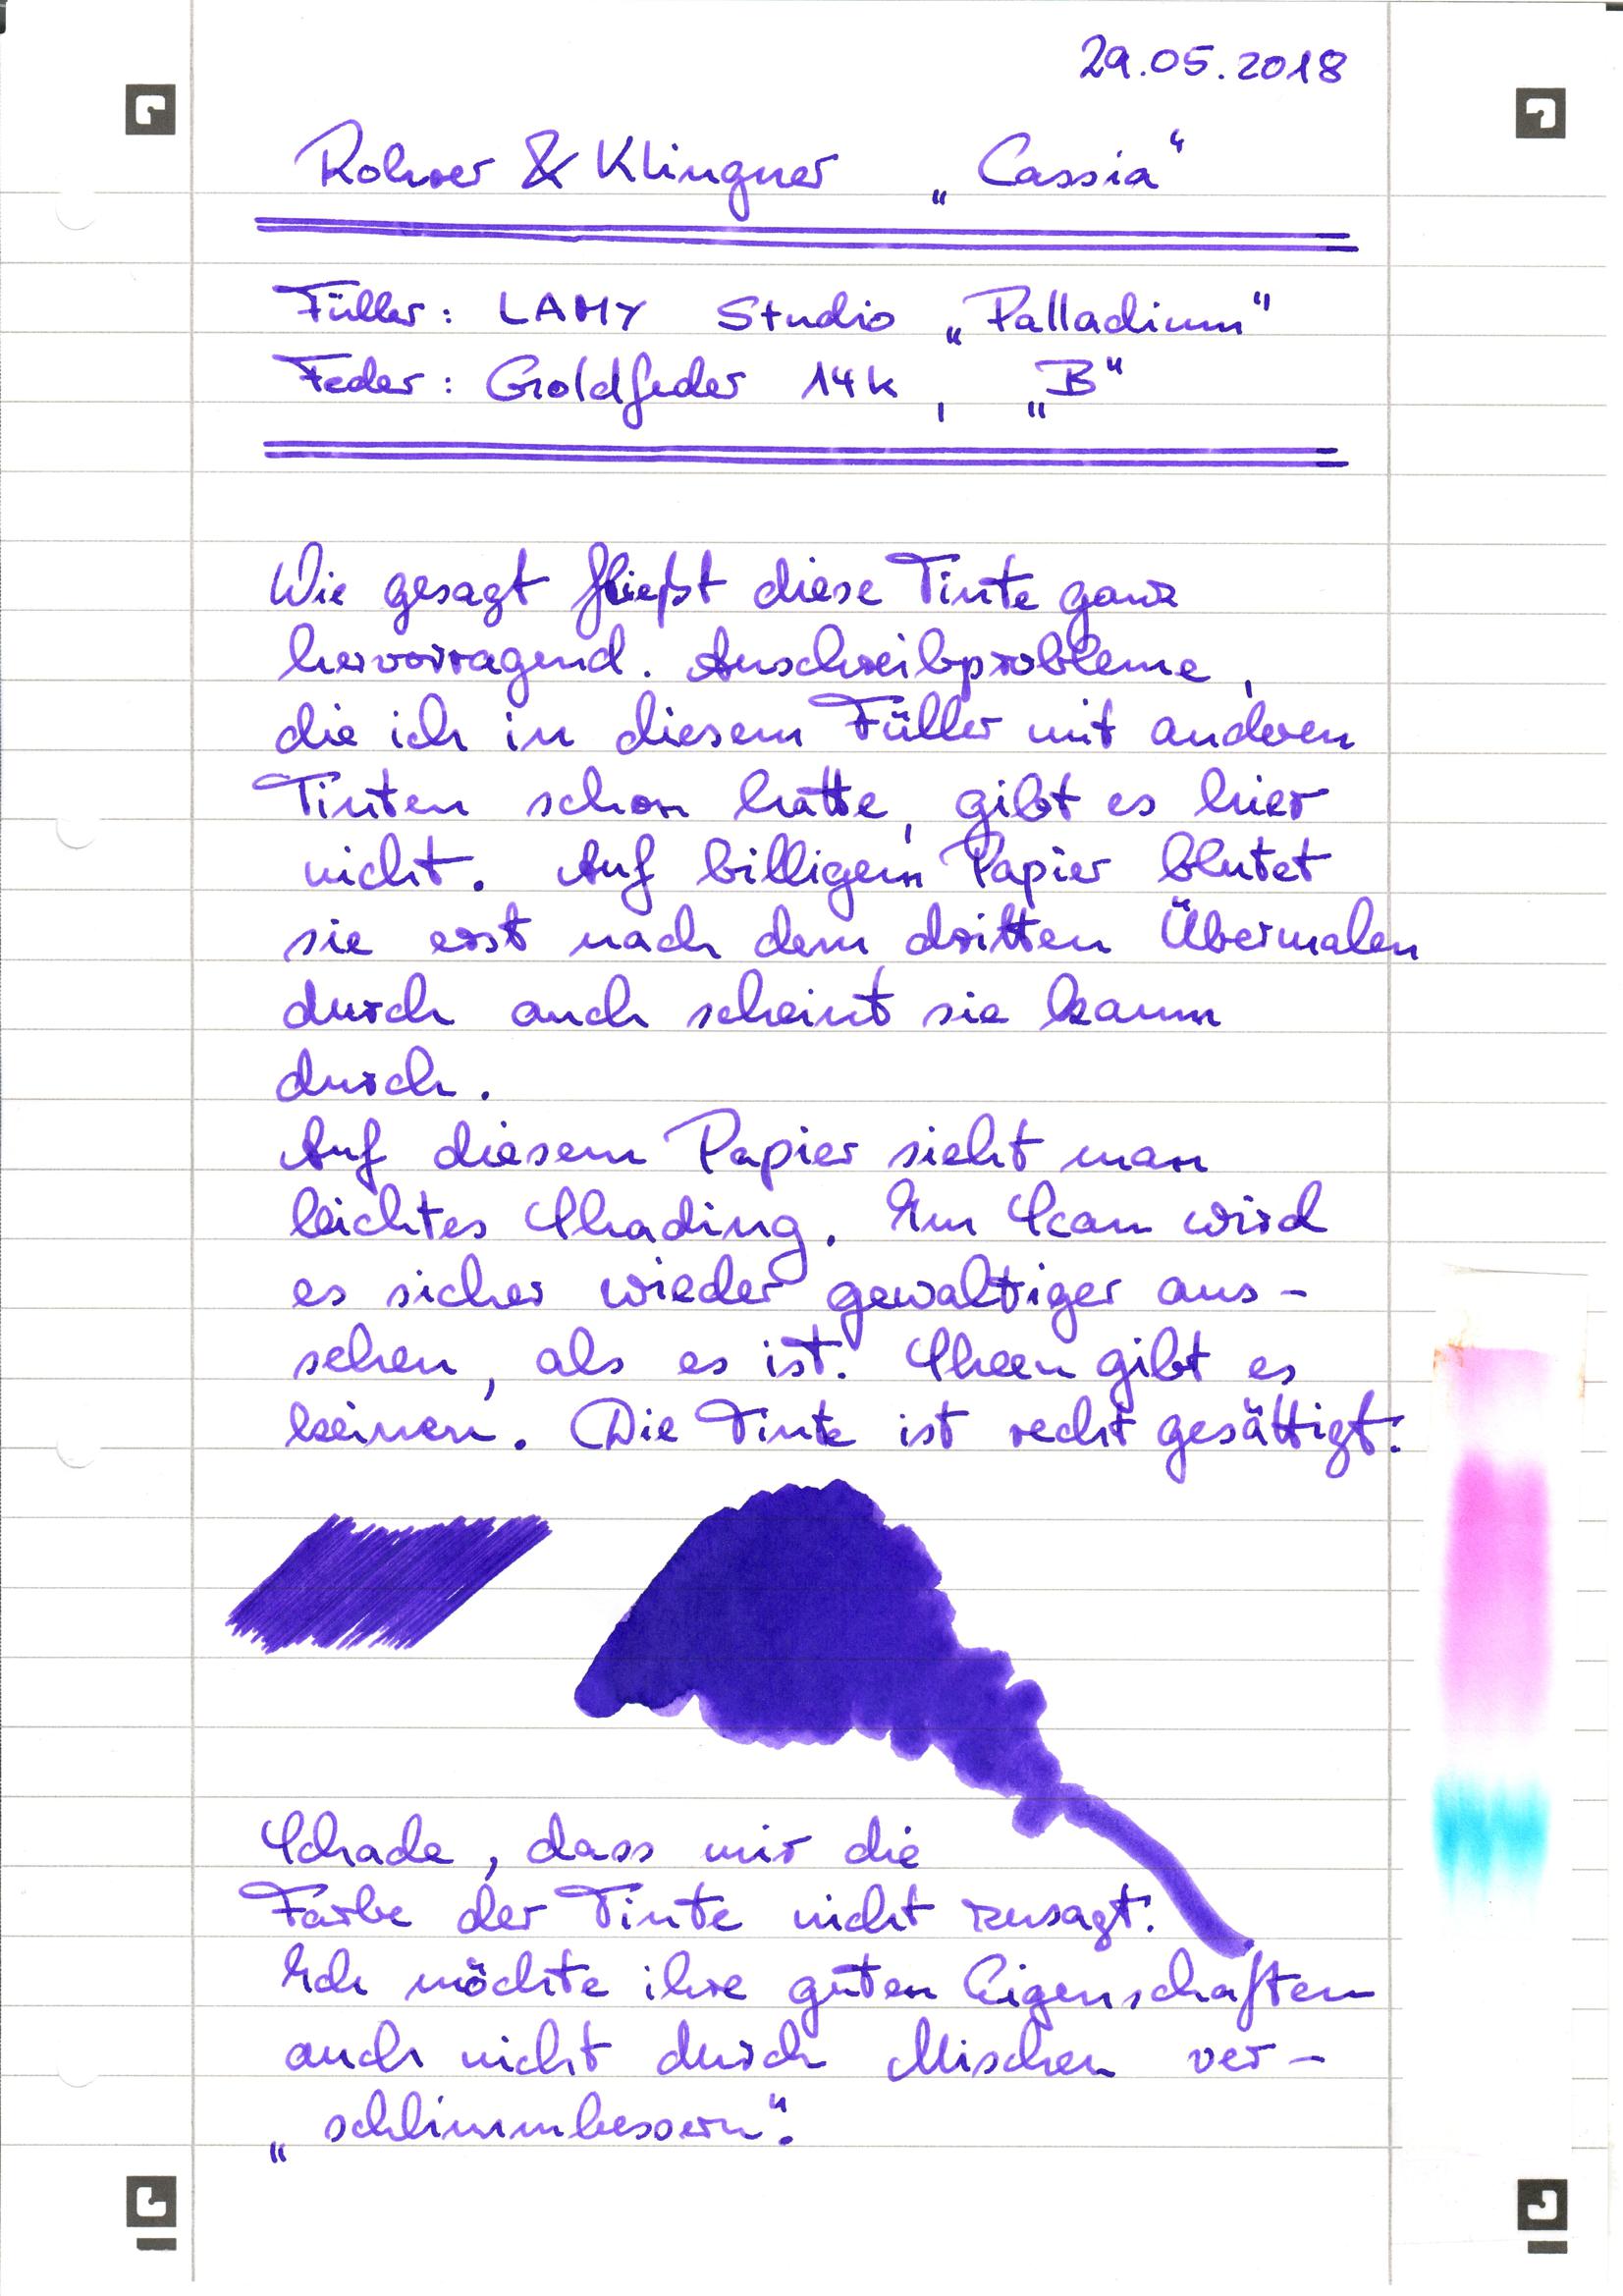 29.05.2018
Rohrer & Klingner „Cassia“
Füller: LAMY Studio „Palladium“
Feder: Goldfeder 14k, „B“
Wie gesagt fließt diese Tinte ganz
hervorragend. Anschreibprobleme,
die ich in diesem Füller mit anderen
Tinten schon hatte, gibt es hier
nicht. Auf billigem Papier blutet
sie erst nach dem dritten Übermalen
durch auch scheint sie kaum
durch.
Auf diesem Papier sieht man
leichtes Shading. Im Scan wird
es sicher wieder gewaltiger aus-
sehen, als es ist. Sheen gibt es
keinen. Die Tinte ist recht gesättigt.
Schade, dass mir die
Farbe der Tinte nicht zusagt.
Ich möchte ihre guten Eigenschaften
auch nicht durch Mischen ver-
„schlimmbessern“.